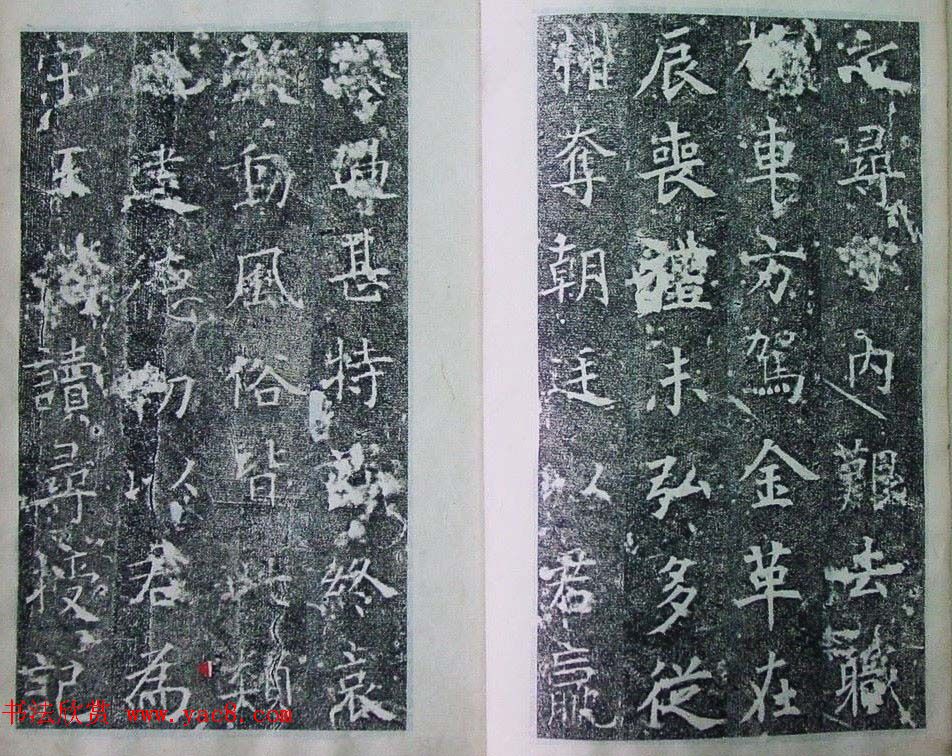 尋內艱去職
車方駕金革在
辰喪禮未弘多從
相奪朝廷以君羸
典甚特終哀
動風俗皆此類
建德初以君為
王讀尋授記
书法欣赏 www.yac8.com